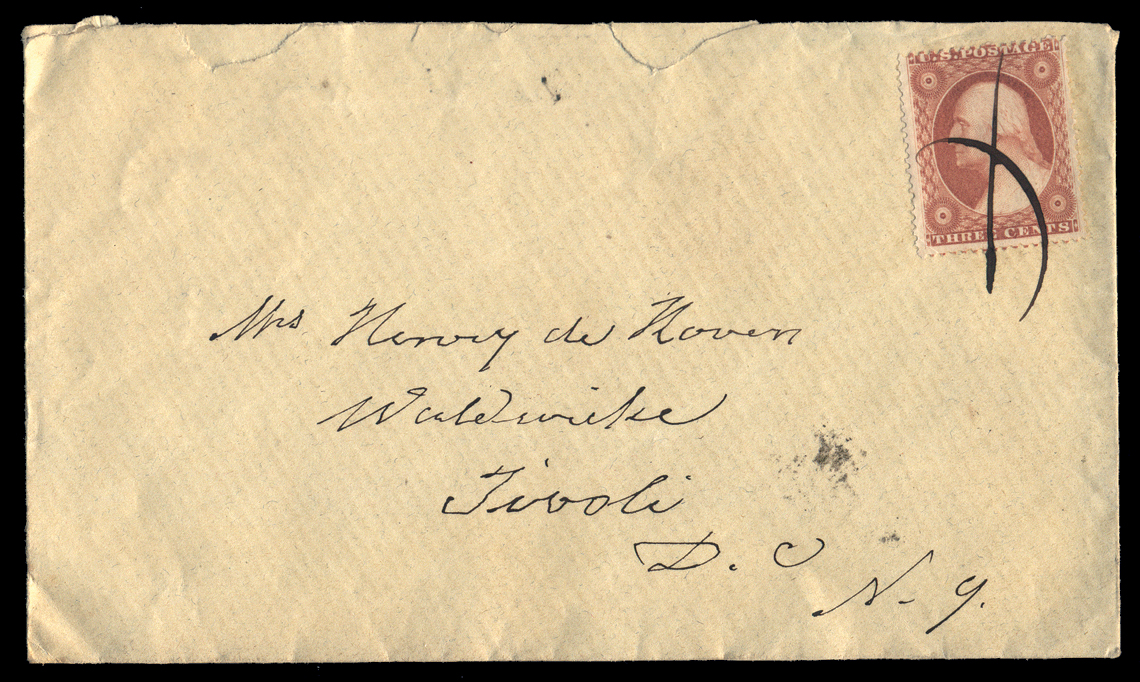 U.S. POSTAGE
THREE CENTS
Mrs Henry de Koven
Waldwicke
Tivoli
D. C
N. Y.